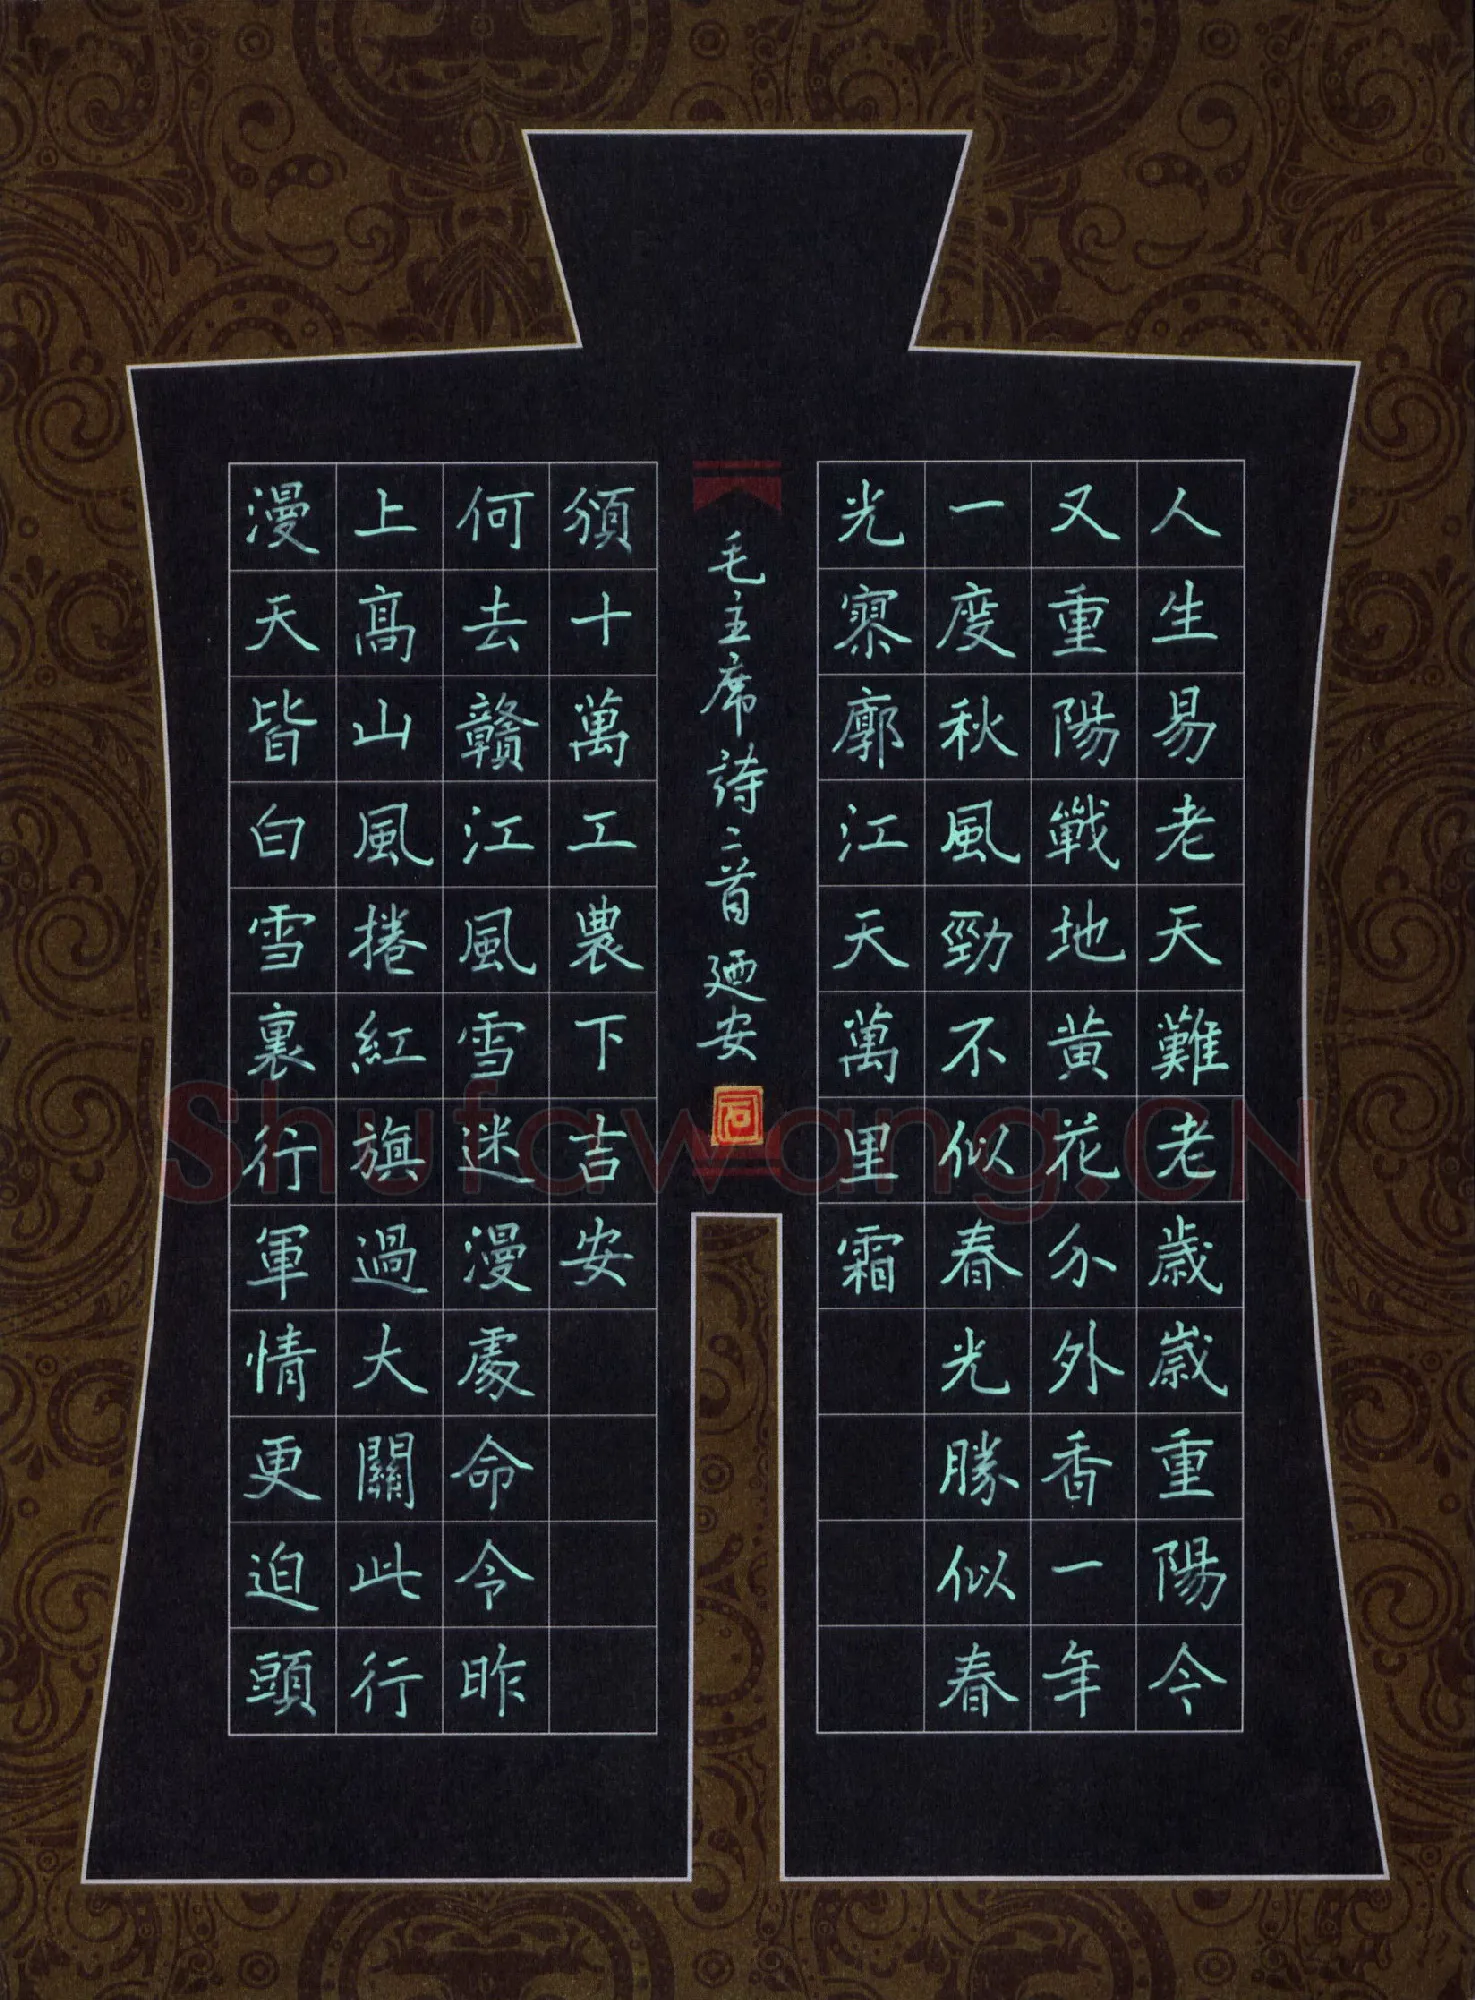 人生易老天難老歲歲重陽今
又重陽戰地黃花分外香一年
一度秋風勁不似春光勝似春
光寥廓江天萬里霜
漫天皆白雪裏行軍情更迫頭
上高山風捲紅旗過大關此行
何去贛江風雪迷漫處命令昨
頒十萬工農下吉安
毛主席詩二首 廼安
Shufawang.CN